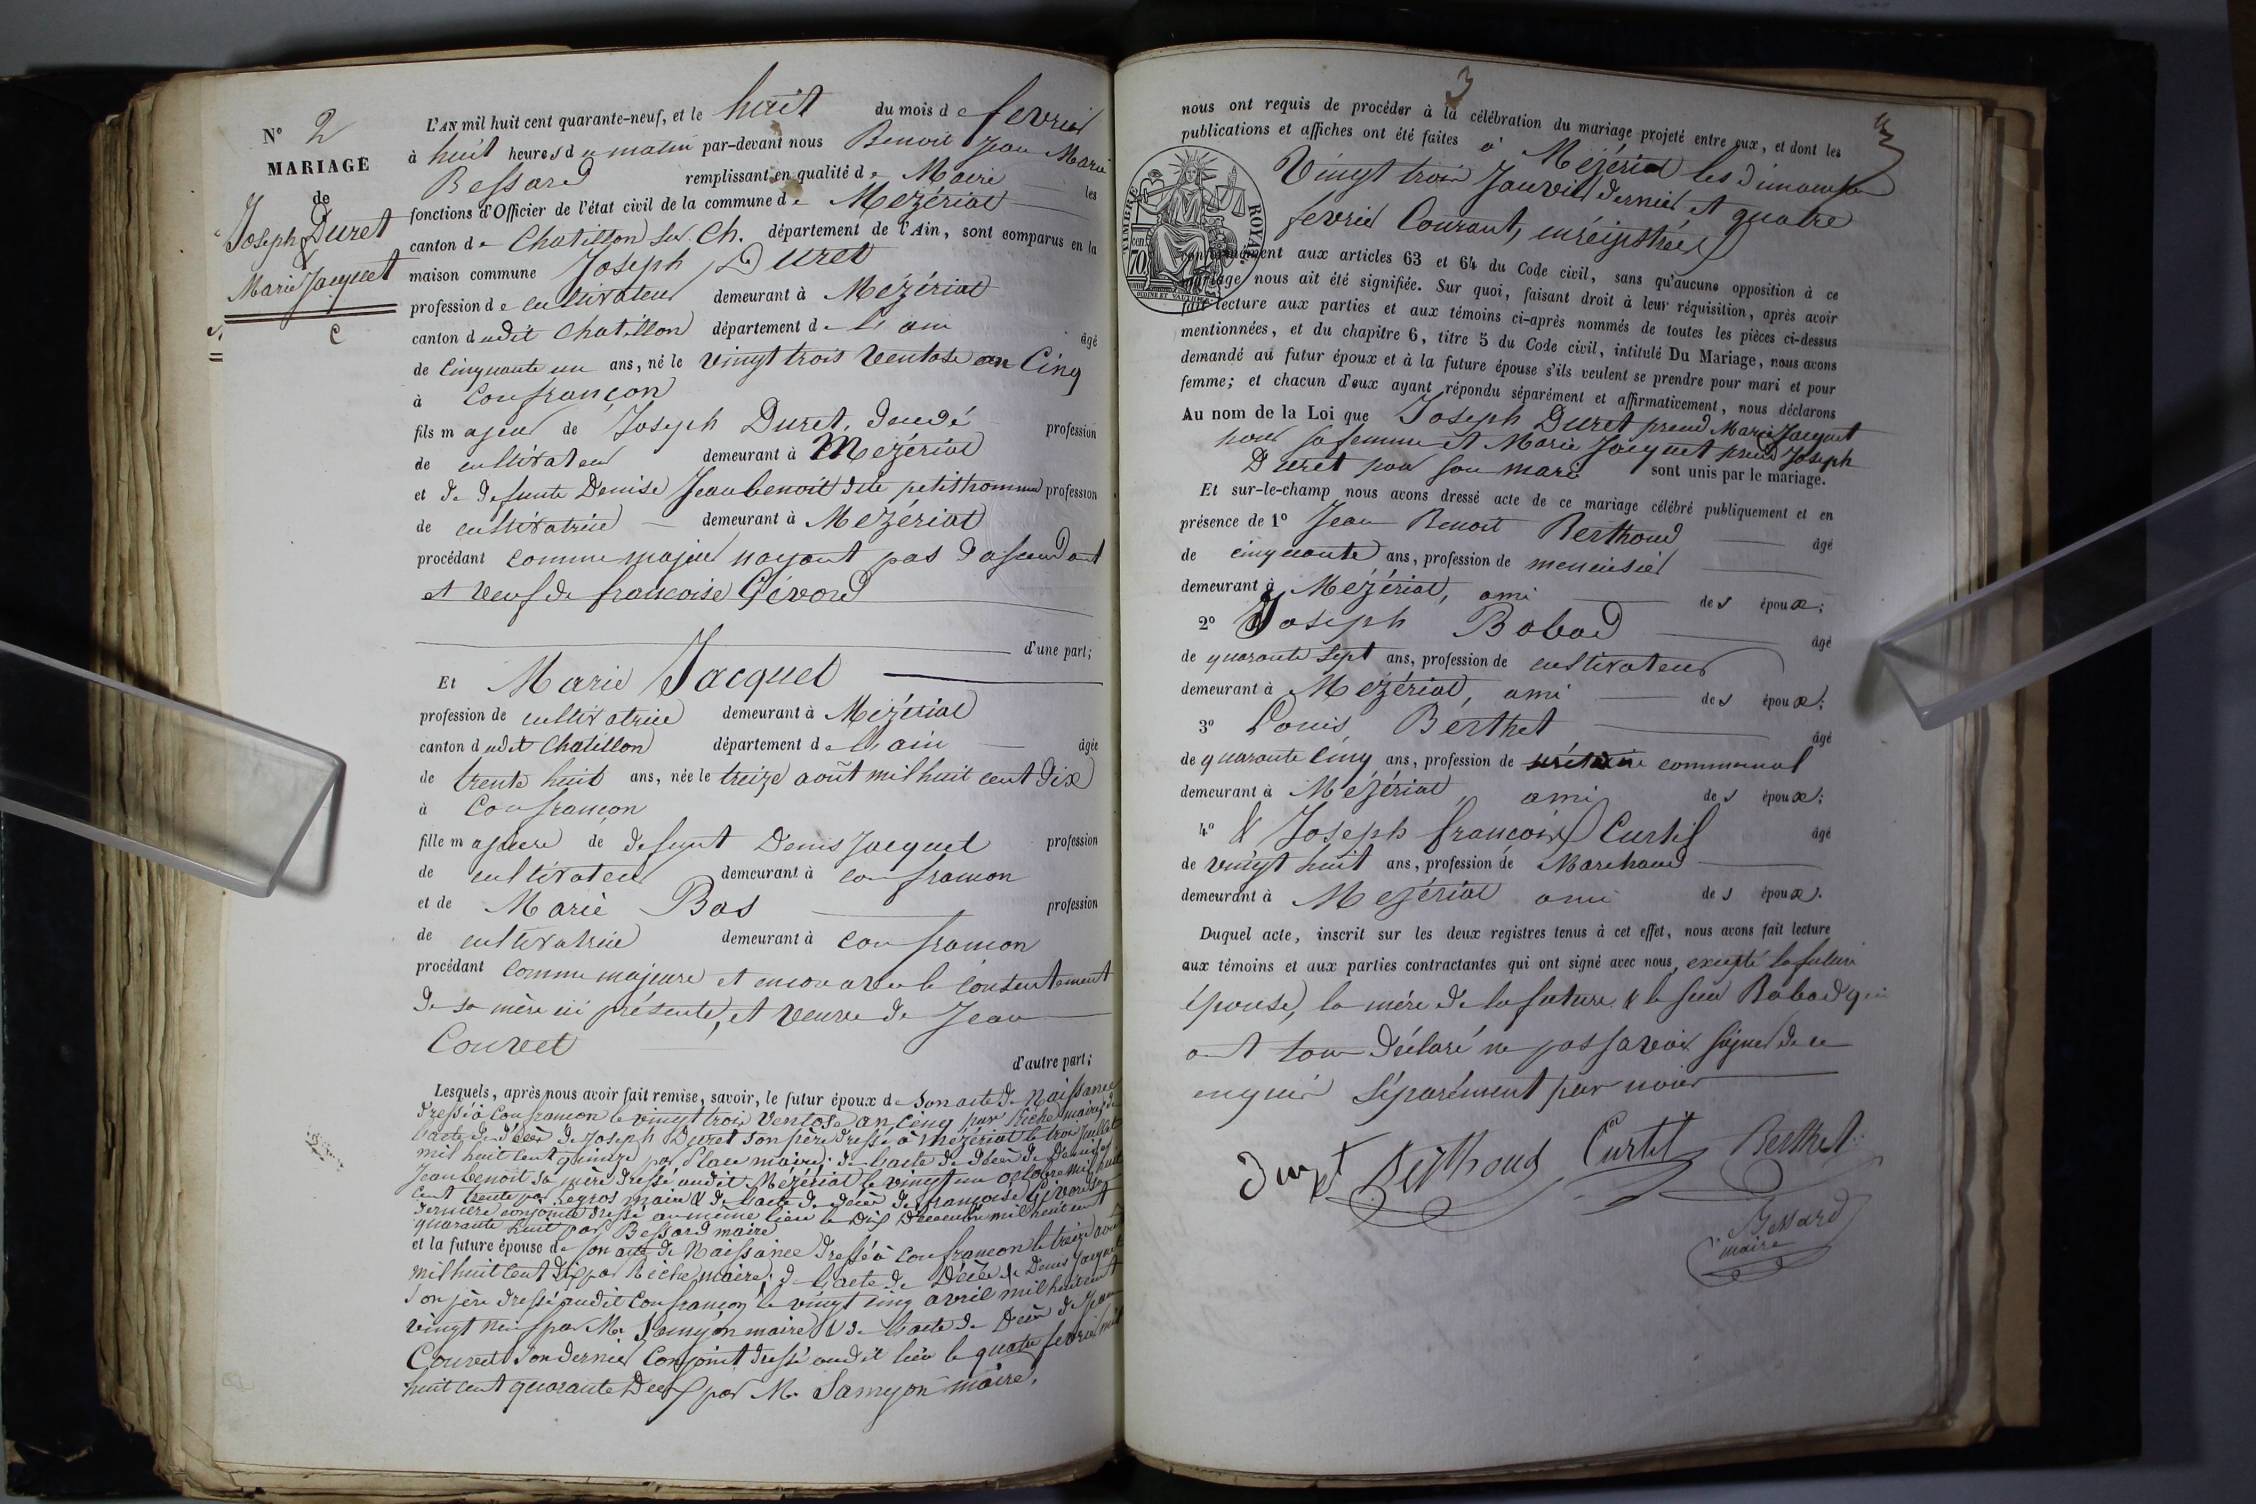 N° 2
MARIAGE
de
Joseph Duret
&
Marie Jacquet
C
L'AN mil huit cent quarante-neuf, et le huit du mois de fevrier
à huit heures du matin par-devant nous Benoit Jean Marie
Bessard remplissant en qualité de Maire les
fonctions d'Officier de l'état civil de la commune de Mézériat
canton de Chatillon sur Ch. département de l'Ain, sont comparus en la
maison commune Joseph Duret
profession de cultivateur demeurant à Mézériat
canton dudit Chatillon département de l'ain âgé
de cinquante un ans, né le vingt trois Ventose an Cinq
à Confrançon
fils majeur de Joseph Duret, décédé profession
de cultivateur demeurant à Mézériat
et de defunte Denise Jeanbenoit dite petithomme profession
de cultivatrice demeurant à Mézériat
procédant comme majeur nayant pas d'ascendant
et veuf de francoise Gévord
d'une part;
Et Marie Jacquet
profession de cultivatrice demeurant à Mézériat
canton dudit Chatillon département de l'ain âgée
de trente huit ans, née le treize août mil huit cent dix
à Confrançon
fille majeure de defunt Denis Jacquet profession
de cultivateur demeurant à confrancon
et de Marie Bas profession
de cultivatrice demeurant à confrancon
procédant comme majeure et encore avec le consentement
de sa mère ici présente, et veuve de Jean
Couvet
d'autre part;
Lesquels, après nous avoir fait remise, savoir, le futur époux de son acte de Naissance
dressé à Confrancon le vingt trois Ventose an cinq par Riche maire, de
l'acte de décès de Joseph Duret son père dressé à Mézériat le trois juillet
mil huit cent quinze par Place maire; de l'acte de décès de Denise
Jeanbenoit sa mère dressé audit Mézériat le vingt un octobre mil huit
cent trente par Legros maire & de l'acte de décès de françoise Gévord sa
dernière conjointe dressé au même lieu le dix Décembre mil huit cent
quarante huit par Bessard maire
et la future épouse de son acte de Naissance dressé à confrancon le treize août
mil huit cent dix par Riche maire; de l'acte de Décès de Denis Jacquet
son père dressé audit Confrançon le vingt cinq avril mil huit cent
vingt neuf par Mr. Samyon maire & de l'acte de Décès de Jean
Couvet son dernier Conjoint dressé audit lieu le quatre fevrier mil
huit cent quarante Deux par M. Samyon maire.
3
nous ont requis de procéder à la célébration du mariage projeté entre eux, et dont les
publications et affiches ont été faites à Mézériat les dimanches
Vingt trois Janvier dernier et quatre
fevrier Courant, enrégistrées
TIMBRE ROYAL
70 cen
conformément aux articles 63 et 64 du Code civil, sans qu'aucune opposition à ce
mariage nous ait été signifiée. Sur quoi, faisant droit à leur réquisition, après avoir
fait lecture aux parties et aux témoins ci-après nommés de toutes les pièces ci-dessus
mentionnées, et du chapitre 6, titre 5 du Code civil, intitulé Du Mariage, nous avons
demandé au futur époux et à la future épouse s'ils veulent se prendre pour mari et pour
femme; et chacun d'eux ayant répondu séparément et affirmativement, nous déclarons
Au nom de la Loi que Joseph Duret prend Marie Jacquet
pour sa femme et Marie Jacquet prend Joseph
Duret pour son mari sont unis par le mariage.
Et sur-le-champ nous avons dressé acte de ce mariage célébré publiquement et en
présence de 1° Jean Benoit Berthoud âgé
de cinquante ans, profession de menuisier
demeurant à Mézériat, ami des époux;
2° Joseph Bobad âgé
de quarante sept ans, profession de cultivateur
demeurant à Mézériat, ami des époux;
3° Louis Berthet âgé
de quarante cinq ans, profession de communal
demeurant à Mézériat, ami des époux;
4° & Joseph francois Curtil âgé
de vingt huit ans, profession de Marchand
demeurant à Mézériat ami des époux.
Duquel acte, inscrit sur les deux registres tenus à cet effet, nous avons fait lecture
aux témoins et aux parties contractantes qui ont signé avec nous, excepté la future
épouse, la mère de la future & le sieur Babad qui
ont tous déclaré ne pas savoir signer de ce
enquis séparément par nous
Duret Berthoud Curtil Berthet
Bessard
maire